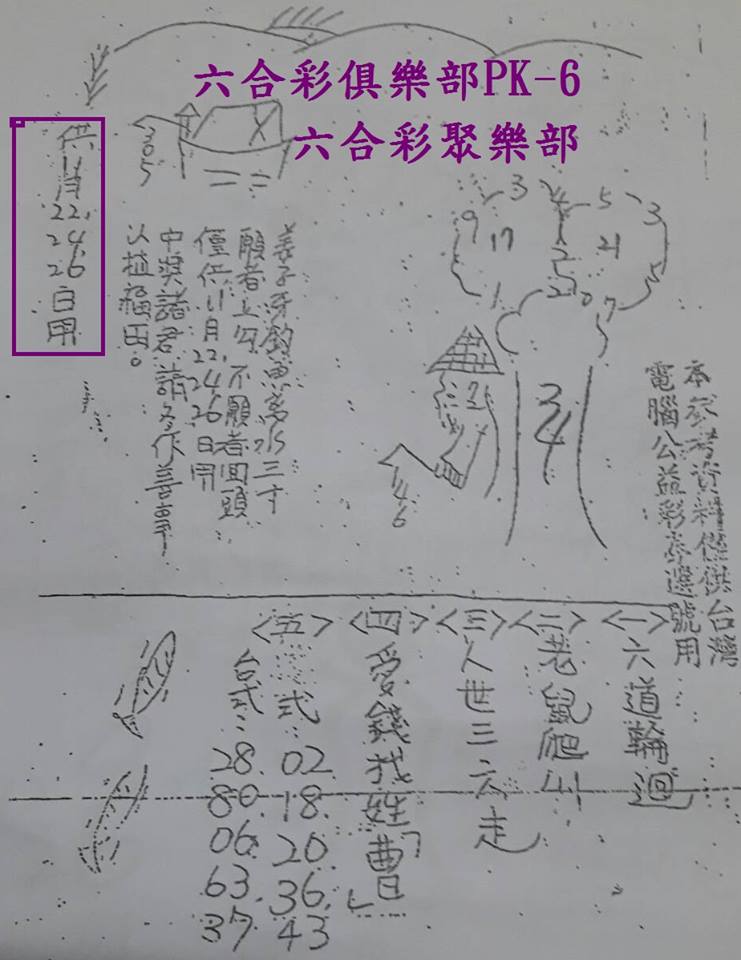 六合彩俱樂部PK-6
六合彩聚樂部
供11月22,24,26日用
305
姜子牙釣魚离水三寸
願者上勾不願者回頭
僅供11月22,24,26日用
中奬諸君請多作善事
以植福田。
3
4
5
3
9
17
2
21
5
1
2
0
7
34
146
本參考資料僅供台灣
電腦公益彩券選號用
<一>六道輪迴
<二>老鼠爬山
<三>人世三六走
<四>愛錢找姓「曹」
<五>
式:02.18.20.36.43
台式:28.80.06.63.37